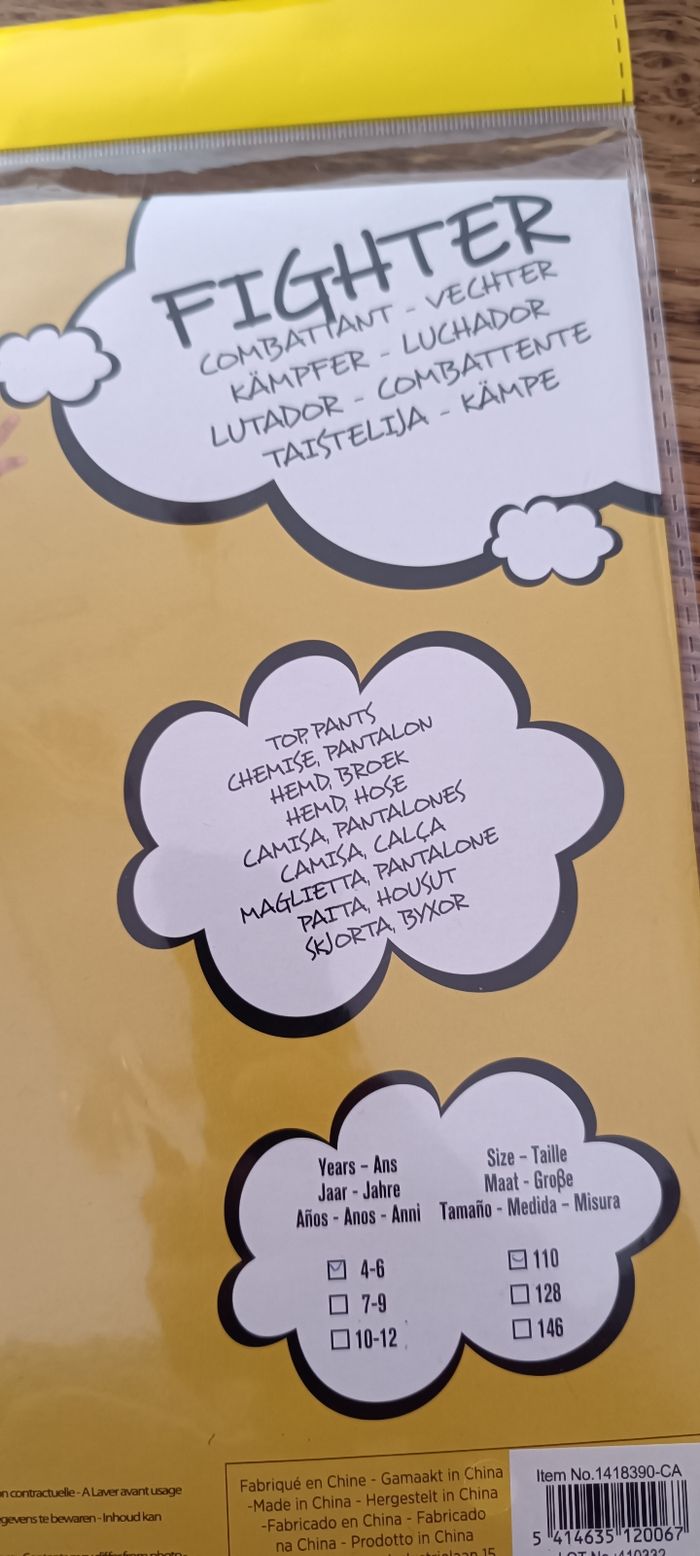 FIGHTER
COMBATTANT - VECHTER
KÄMPFER - LUCHADOR
LUTADOR - COMBATTENTE
TAISTELIJA - KÄMPE
TOP, PANTS
CHEMISE, PANTALON
HEMD, BROEK
HEMD, HOSE
CAMISA, PANTALONES
CAMISA, CALÇA
MAGLIETTA, PANTALONE
PAITA, HOUSUT
SKJORTA, BYXOR
Years - Ans
Jaar - Jahre
Años - Anos - Anni
4-6
7-9
10-12
Size - Taille
Maat - Große
Tamaño - Medida - Misura
110
128
146
contractuelle - A Laver avant usage
te bewaren - Inhoud kan
Fabriqué en Chine - Gamaakt in China
-Made in China - Hergestelt in China
-Fabricado en China - Fabricado
na China - Prodotto in China
15
Item No.1418390-CA
5 414635 120067